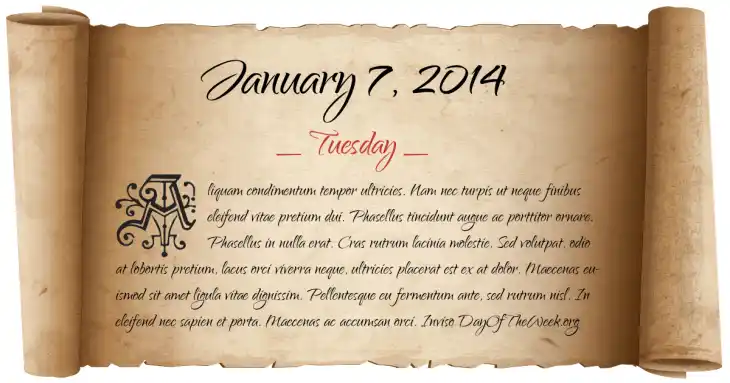 January 7, 2014
— Tuesday —
Aliquam condimentum tempor ultricies. Nam nec turpis ut neque finibus
eleifend vitae pretium dui. Phasellus tincidunt augue ac porttitor ornare.
Phasellus in nulla erat. Cras rutrum lacinia molestie. Sed volutpat, odio
at lobortis pretium, lacus orci viverra neque, ultricies placerat est ex at dolor. Maecenas eu-
ismod sit amet ligula vitae dignissim. Pellentesque eu fermentum ante, sed rutrum nisl. In
eleifend nec sapien et porta. Maecenas ac accumsan orci. Inviso DayOfTheWeek.org